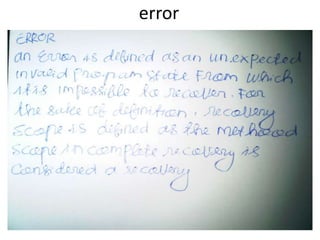 error
ERROR
an Error is defined as an unexpected
invalid program state From which
it is impossible to recover. For
the sake of definition, recovery
Scope is defined as the methood
Scope in complete recovery is
Considered a recovery